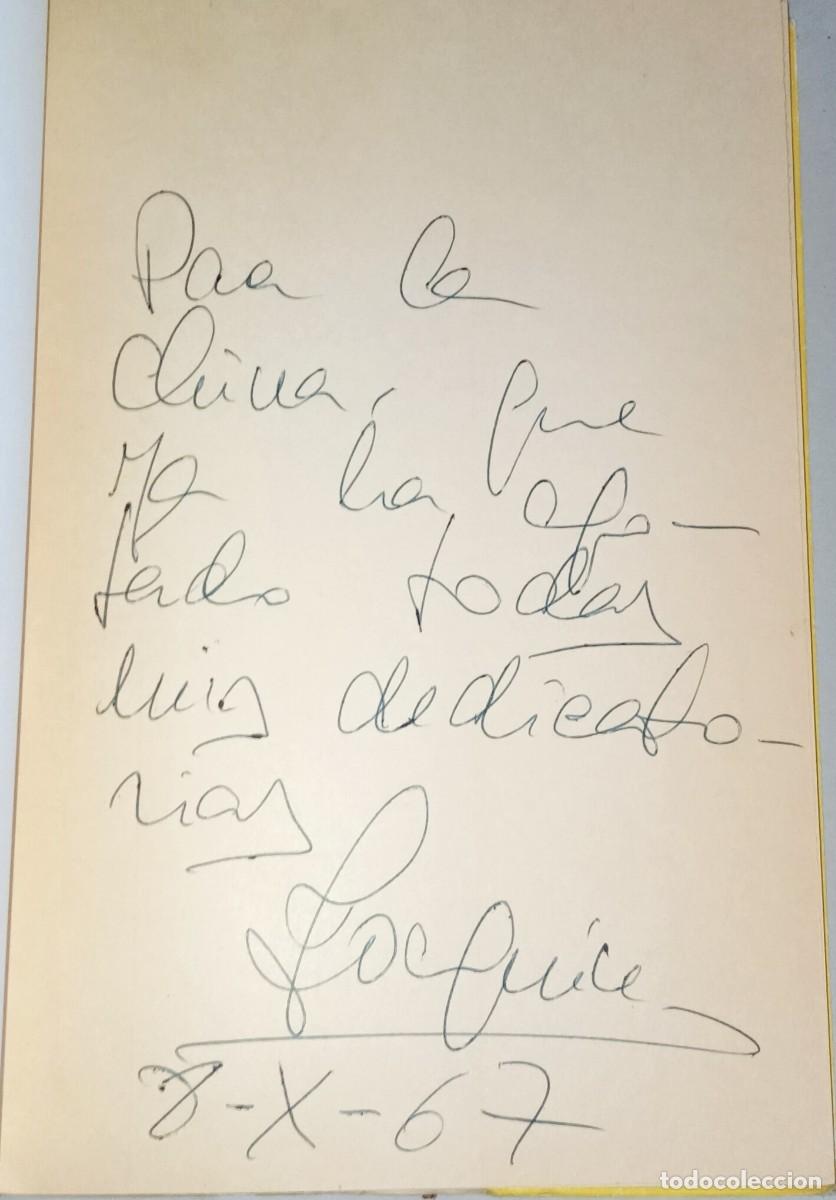 Para la
China, que
ya ha ago-
tado todas
mis dedicato-
rias
Joaquín
8-X-67
todocoleccion